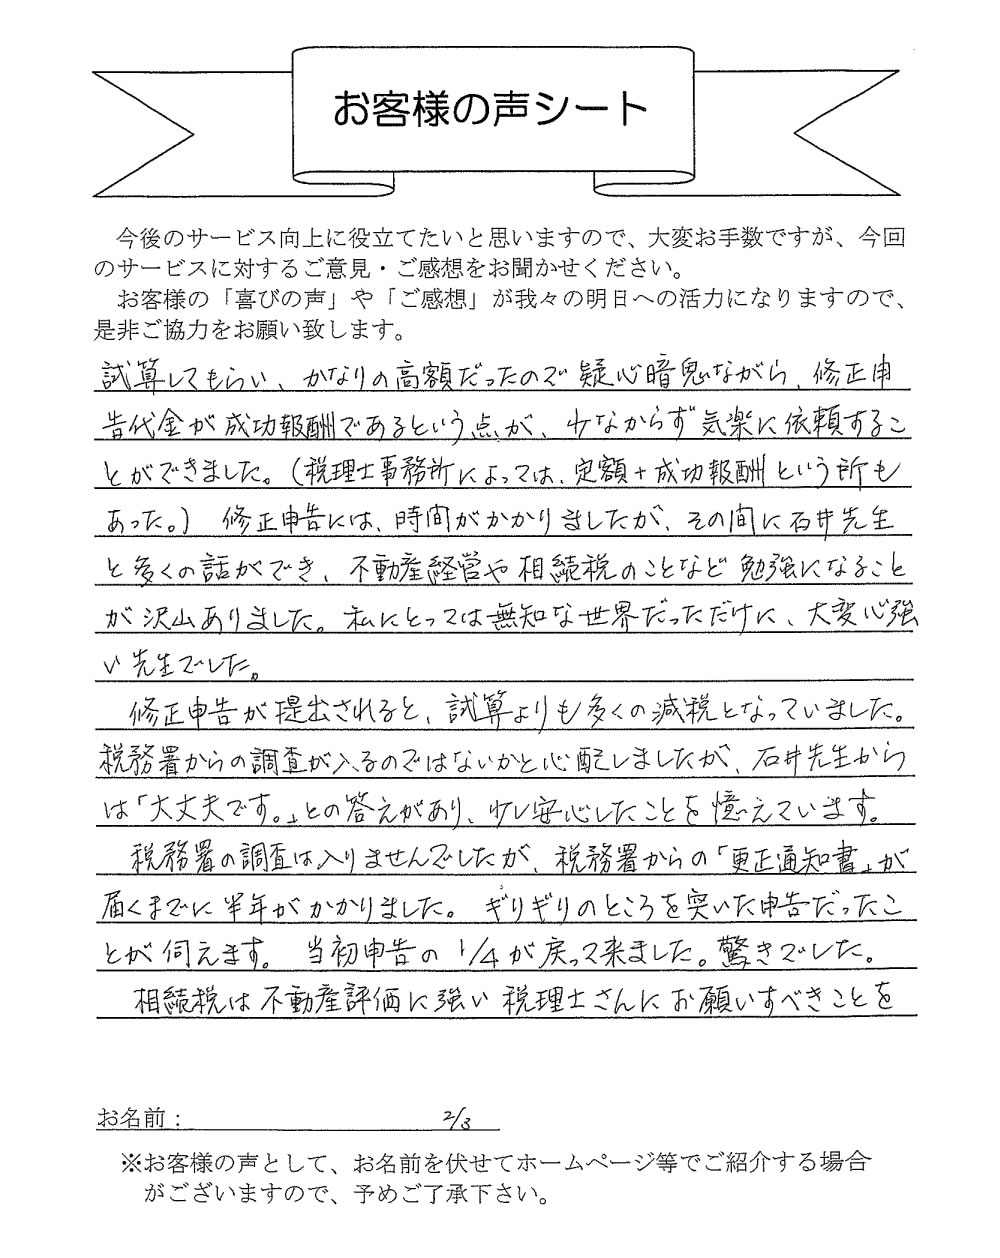 お客様の声シート
今後のサービス向上に役立てたいと思いますので、大変お手数ですが、今回
のサービスに対するご意見・ご感想をお聞かせください。
お客様の「喜びの声」や「ご感想」が我々の明日への活力になりますので、
是非ご協力をお願い致します。
試算してもらい、かなりの高額だったので疑心暗鬼ながら、修正申
告代金が成功報酬であるという点が、少なからず気楽に依頼するこ
とができました。(税理士事務所によっては、定額+成功報酬という所も
あった。) 修正申告には、時間がかかりましたが、その間に石井先生
と多くの話ができ、不動産経営や相続税のことなど勉強になること
が沢山ありました。私にとっては無知な世界だっただけに、大変心強
い先生でした。
修正申告が提出されると、試算よりも多くの減税となっていました。
税務署からの調査が入るのではないかと心配しましたが、石井先生から
は「大丈夫です。」との答えがあり、少し安心したことを憶えています。
税務署の調査は入りませんでしたが、税務署からの「更正通知書」が
届くまでに半年がかかりました。ギリギリのところを突いた申告だったこ
とが伺えます。 当初申告の1/4が戻って来ました。驚きでした。
相続税は不動産評価に強い税理士さんにお願いすべきことを
お名前: 2/3
※お客様の声として、お名前を伏せてホームページ等でご紹介する場合
がございますので、予めご了承下さい。